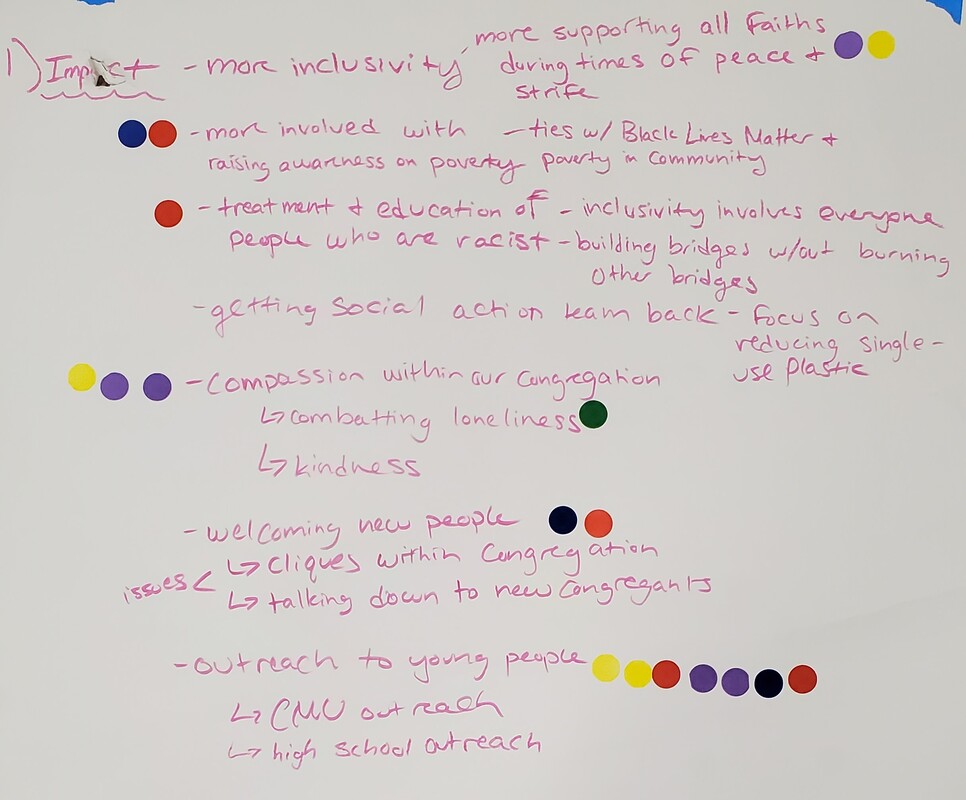 1) Impact - more inclusivity, more supporting all Faiths
during times of peace +
strife
- more involved with - ties w/ Black Lives Matter +
raising awareness on poverty poverty in community
- treatment + education of - inclusivity involves everyone
people who are racist - building bridges w/out burning
other bridges
- getting social action team back - focus on
reducing single-
use plastic
- compassion within our congregation
↳ combatting loneliness
↳ kindness
- welcoming new people
issues < ↳ cliques within congregation
↳ talking down to new congregants
- outreach to young people
↳ CMU outreach
↳ high school outreach